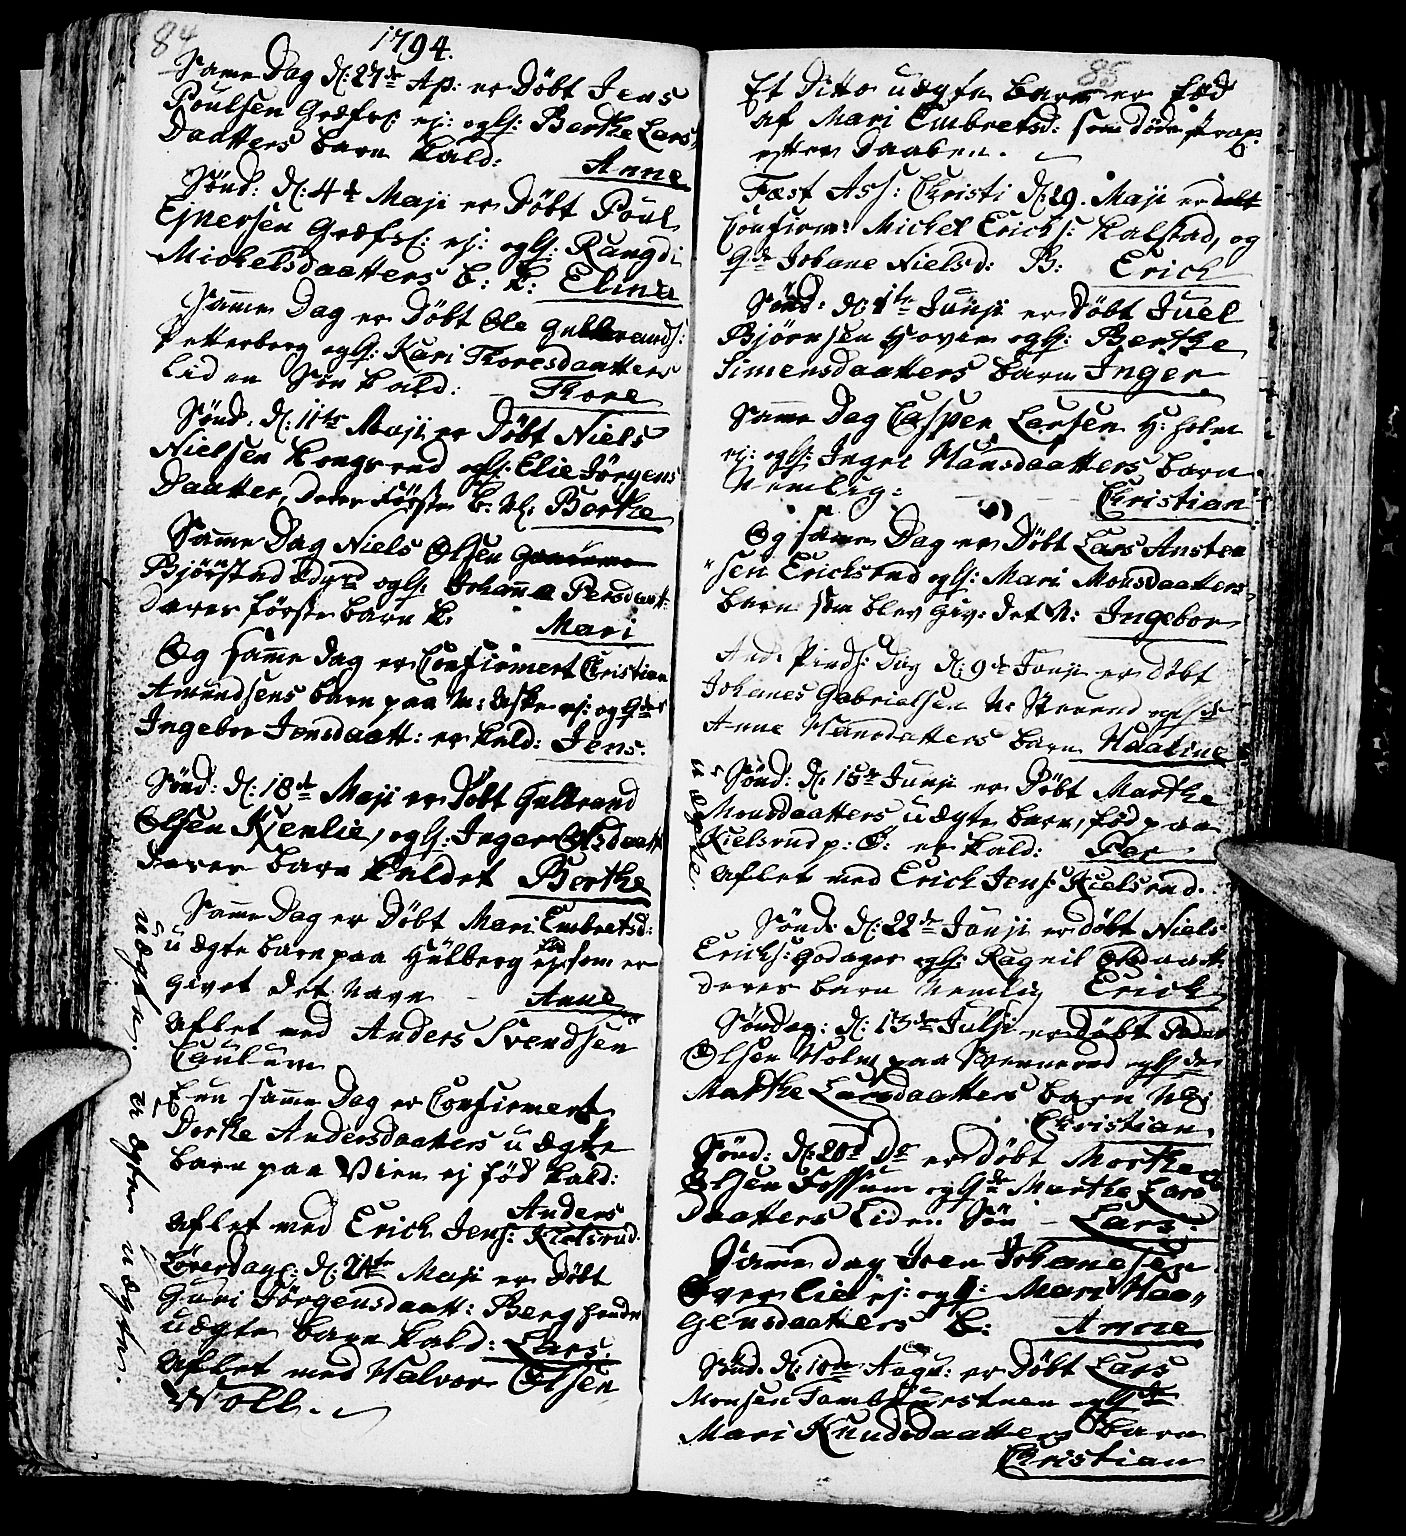 84
1794.
Same Dag d: 27de Ap: er Døbt Jens
Poulsen Græfs: ej: og Hs: Berthe Lars
Daatters barn kald: Anne
Sønd: d: 4de Maji er Døbt Poul
Ejnersen Græfs: ej: og Hs: Rangdi
Michelsdaatters b: k: Elina
Samme Dag er Døbt Ole Gulbrands:
Petterberg og Hs: Kari Thoresdaatters
liden Søn kald: Thore
Sønd: d: 11te Maji er Døbt Niels
Nielsen Kongsrud og Hs: Elie Jörgens
Daatter, deres første b: N: Berthe
Samme Dag Niels Olsen
Bjørstad og Hs: Johanna Persdaatt:
deres første barn k: Mari
Og samme dag er Confirmert Christian
Amundsens barn paa N: Aske ej: og Hs
Ingebor Jensdaatt: er kald: Jens.
Sønd: d: 18de Maji er Døbt Gulbrand
Olsen Kjenlie, og Hs: Inger Olsdaatt
deres barn kaldet Berthe
Samme Dag er Døbt Mari Embretsd:
uægte barn paa Hülberg ej: som er
givet det Navn - Anne
Aflet med Anders Svendsen
Caulum
Een samme Dag er Confirmert
Dorthe Andersdaatters uægte
barn paa Vien ej född kald:
Anders
Aflet med Erich Jens: Kielsrud.
Løverdag: d: 24te Maji er Døbt
Guri Jörgensdaatt: Berg
uægte barn kald: Lars.
Aflet med Halvor Olsen
Woll.
uægte. uægte uægte.
85
Et Ditto uægte barn er fød
af Mari Embretsd: som døde strax
efter Daaben.
Fæst Ass: Christi d: 29. Maji er
Confirm: Michel Erichs: Kalstad, og
Hs Johane Nielsd: B: Erich
Sønd: d: 1te Junji er Døbt Juel
Bjørnsen Hoven og Hs: Berthe
Simensdaatters barn Inger
Samme Dag Casper Larsen H: holm
ej: og Hs: Ingri Hansdaatters barn
Nemlig: - - - Christian
Og samme Dag er Døbt Lars Ansten
"sen Ericksrud og Hs: Mari Monsdaatters
barn som blev giv: det N: Ingebor
And: Pinds: Dag d: 9de Junji er døbt
Johanes Gabrielsen N: og Hs
Anne Hansdatters barn Haakine
Sønd: d: 15de Junji er Døbt Marthe
Monsdaatters uægte barn, fød paa
Kielsrud p: E: er kald: Per
Aflet med Erich Jens: Kielsrud.
uægte.
Sønd: d: 22de Junji er døbt Niels
Erichs: Godager og Hs: Ragnil Olsdaatt:
deres barn Nemlig Erich
Søndag: d: 13de Julji er Døbt Peder
Olsen Holm paa og Hs
Marthe Larsdaatters barn Nl:
Christian.
Sønd: d: 20de Do er Døbt Morthen
Olsen Fossum og Hs Marthe Lars
Daatters liden Søn - Lars.
Samme dag Iver Johanesen
Øverlie ej: og Hs: Mari Haa"
gensdaatters b: Anne
Sønd: d: 10de Augu: er Døbt Lars
Monsen og Hs
Mari Knudsdaatters barn
Christian